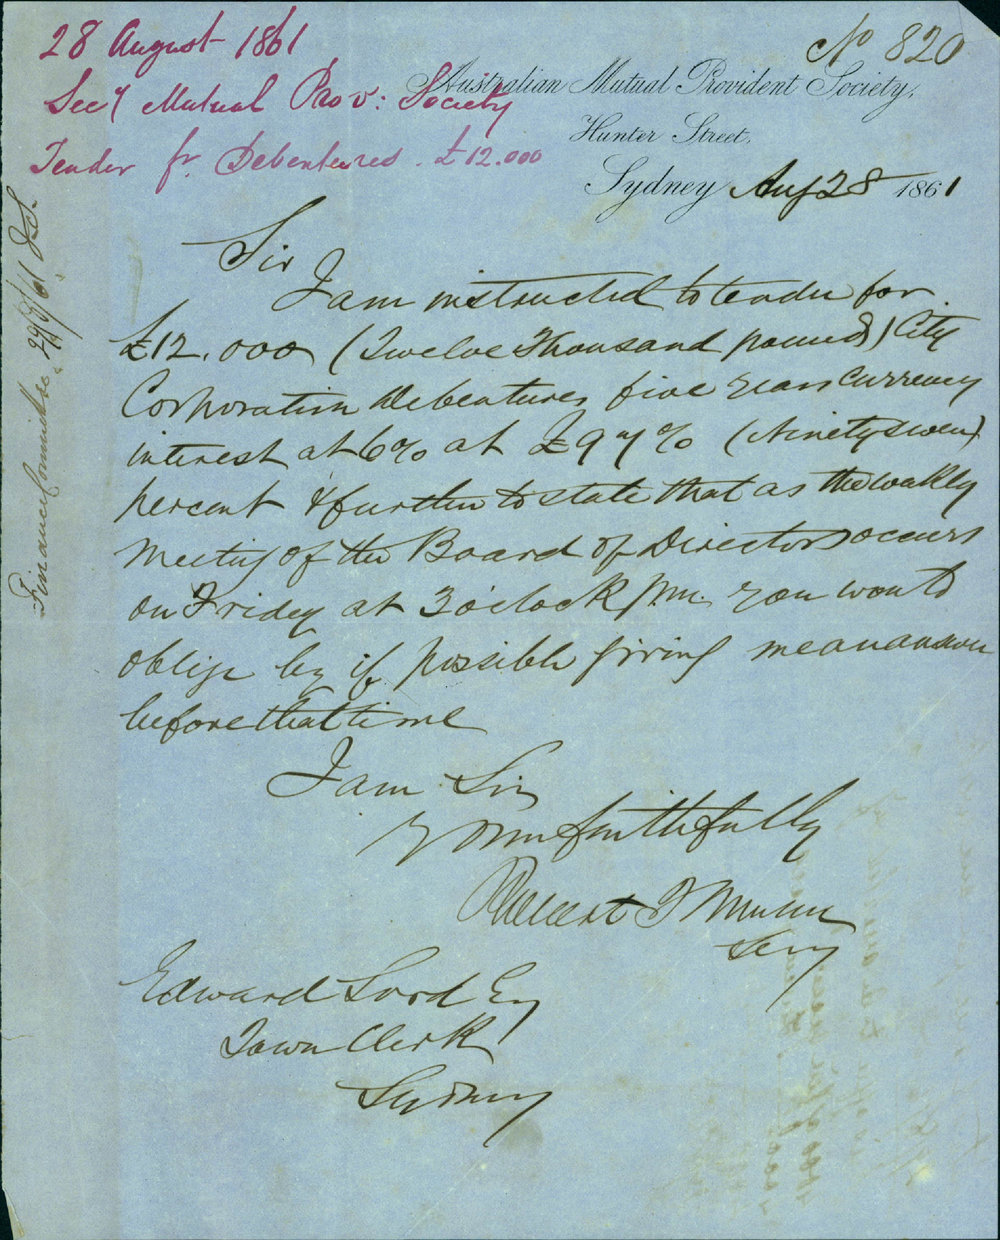 28 August 1861
Secy Mutual Prov: Society
Tender for Debentures. £12.000
No 820
Australian Mutual Provident Society,
Hunter Street,
Sydney Aug 28 1861
Finance Committee 29/8/61
Sir
I am instructed to tender for
£12.000 (Twelve Thousand pounds) City
Corporation Debentures five years currency
interest at 6% at £97% (Ninety seven)
percent & further to state that as the weekly
Meeting of the Board of Directors occurs
on Friday at 3 oclock p.m. you would
oblige by if possible giving me an answer
before that time
I am Sir
Yours faithfully
Robert
Secy
Edward Lord Esq
Town Clerk
Sydney